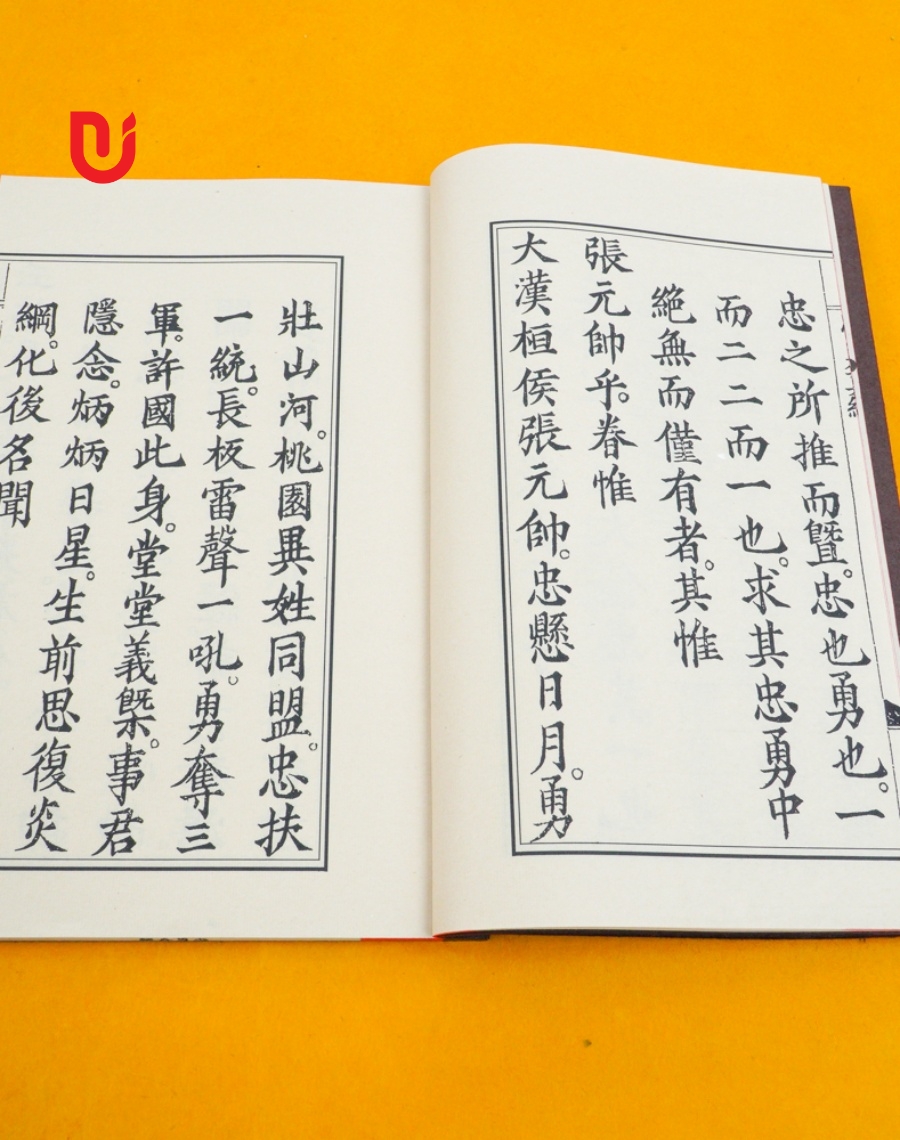 忠之所推而暨。忠也勇也。一
而二二而一也。求其忠勇中
絕無而僅有者。其惟
張元帥乎。眷惟
大漢桓侯張元帥。忠懸日月。勇
壯山河。桃園異姓同盟。忠扶
一統。長板雷聲一吼。勇奪三
軍。許國此身。堂堂義槩。事君
隱念。炳炳日星。生前思復炎
綱。化後名聞